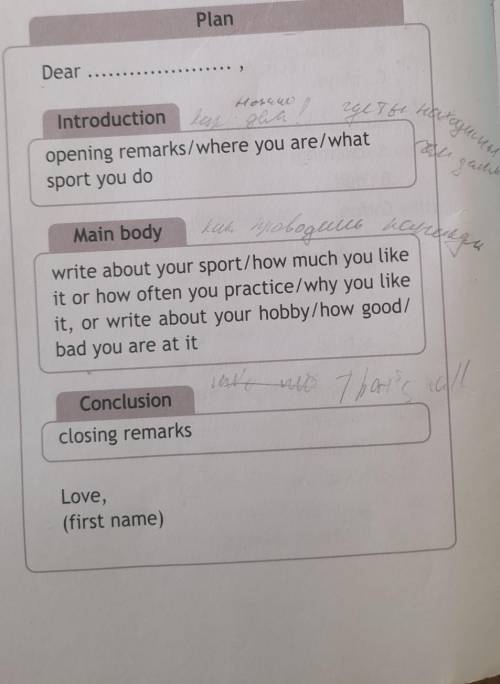 Plan
Dear ........................ ,
Introduction
как дела!
где ты находишься
opening remarks/where you are/what
sport you do
Main body
как проводишь
write about your sport/how much you like
it or how often you practice/why you like
it, or write about your hobby/how good/
bad you are at it
That's all
Conclusion
closing remarks
Love,
(first name)